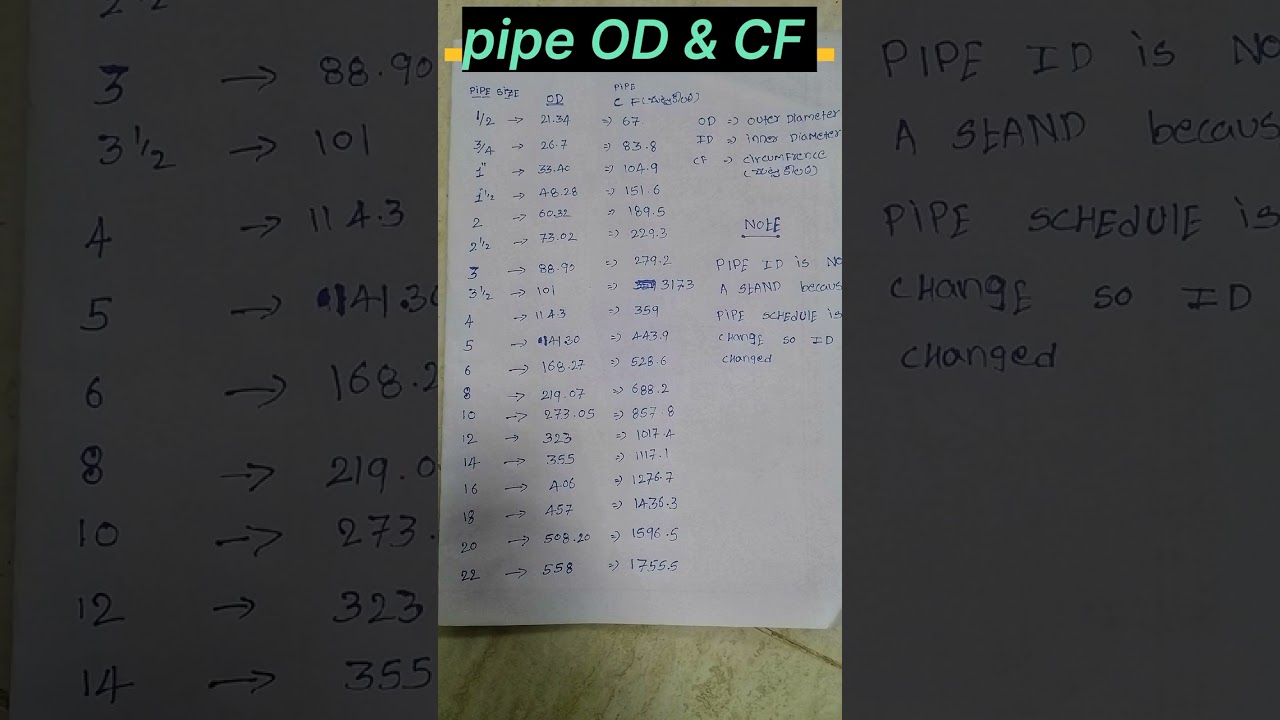 pipe OD & CF
PIPE SIZE OD PIPE
C F(చుట్టుకొలత)
1/2 → 21.34 => 67
3/4 → 26.7 => 83.8
1" → 33.40 => 104.9
1 1/2 → 48.28 => 151.6
2 → 60.32 => 189.5
2 1/2 → 73.02 => 229.3
3 → 88.90 => 279.2
3 1/2 → 101 => 3173
4 → 114.3 => 359
5 → 141.30 => 443.9
6 → 168.27 => 528.6
8 → 219.07 => 688.2
10 → 273.05 => 857.8
12 → 323 => 1017.4
14 → 355 => 1117.1
16 → 406 => 1276.7
18 → 457 => 1436.3
20 → 508.20 => 1596.5
22 → 558 => 1755.5
OD => outer Diameter
ID => inner Diameter
CF → circumfrence
(చుట్టుకొలత)
NOTE
PIPE ID is NO
A STAND becaus
PIPE SCHEDULE is
CHANGE SO ID
CHANGED
3 → 88.90
3 1/2 → 101
4 → 114.3
5 → 141.30
6 → 168.2
8 219.0
10 → 273.
12 → 323
14 → 355
PIPE ID is NO
A STAND becaus
PIPE SCHEDULE is
CHANGE SO ID
CHANGED